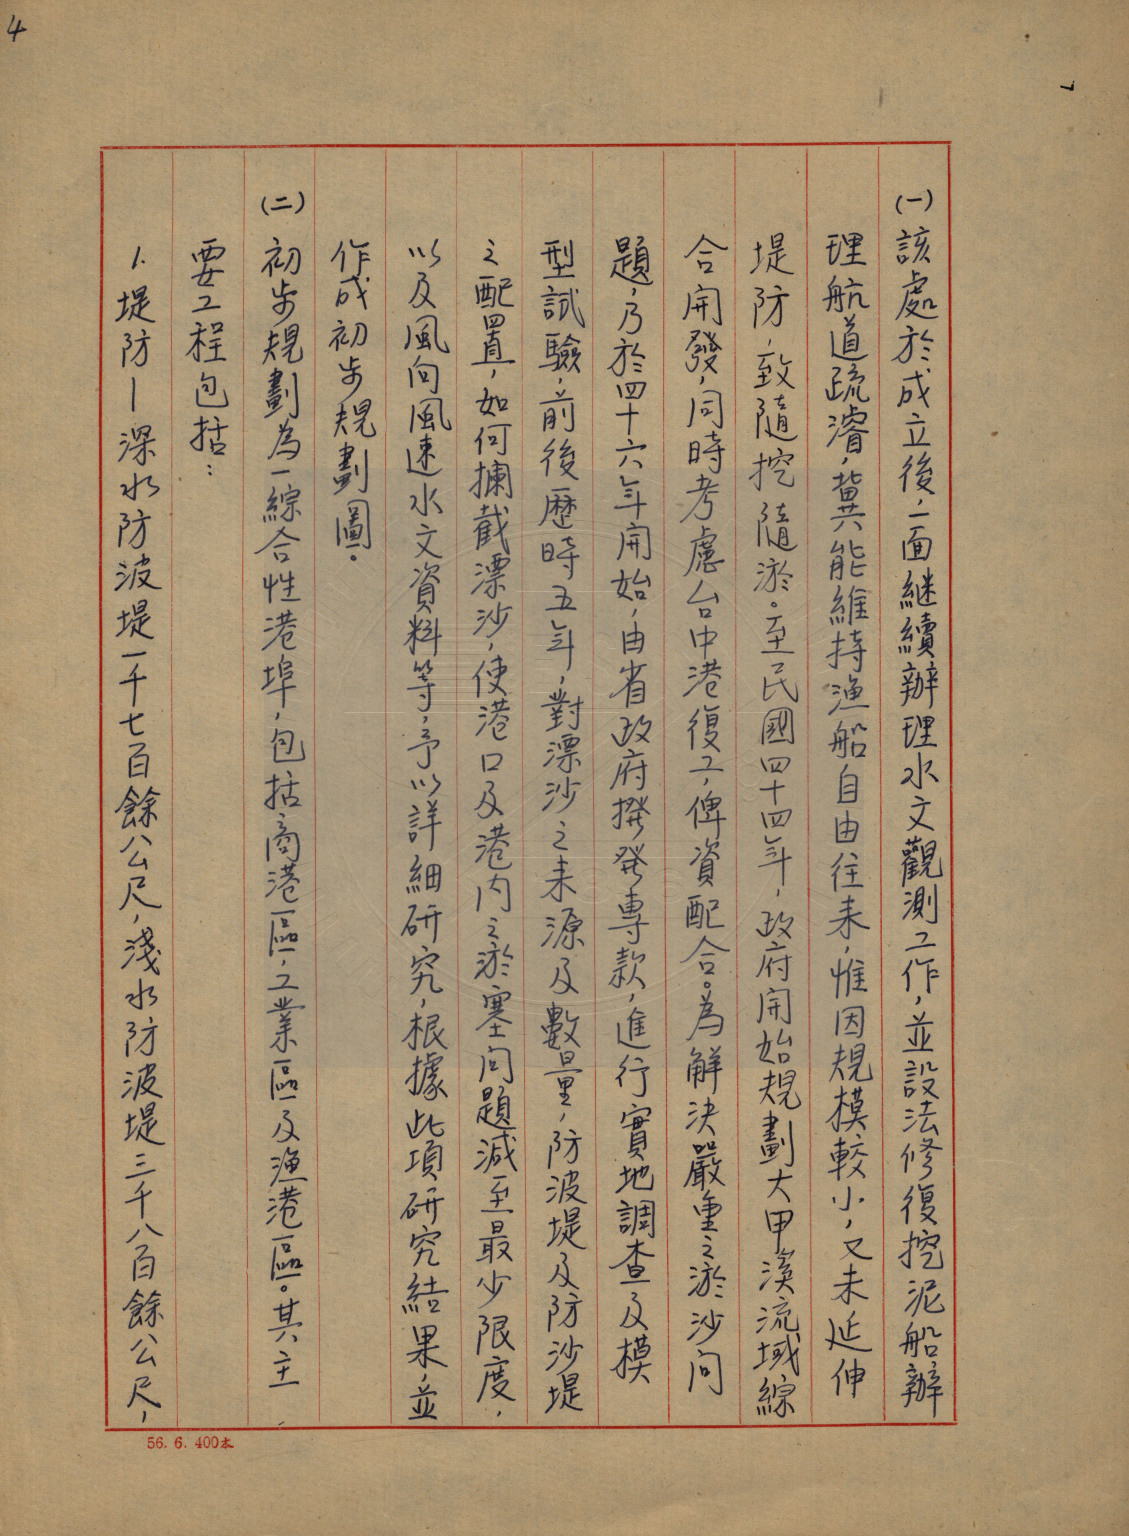 4
(一)該處於成立後,一面継續辦理水文觀測工作,並設法修復挖泥船辦
理航道疏濬,冀能維持漁船自由往来,惟因規模較小,又未延伸
堤防,致隨挖隨淤。至民國四十四年,政府開始規劃大甲溪流域綜
合開發,同時考慮台中港復工,俾資配合。為解決嚴重之淤沙问
題,乃於四十六年開始,由省政府撥発專款,進行實地調查及模
型試驗,前後歷時五年,對漂沙之来源及數量,防波堤及防沙堤
之配置,如何攔截漂沙,使港口及港内之淤塞问題減至最少限度,
以及風向風速水文資料等,予以詳細研究,根據此項研究結果,並
作成初步規劃圖。
(二)初步規劃為一綜合性港埠,包括商港區,工業區及漁港區。其主
要工程包括:
1.堤防—深水防波堤一千七百餘公尺,淺水防波堤三千八百餘公尺,
56. 6. 400本